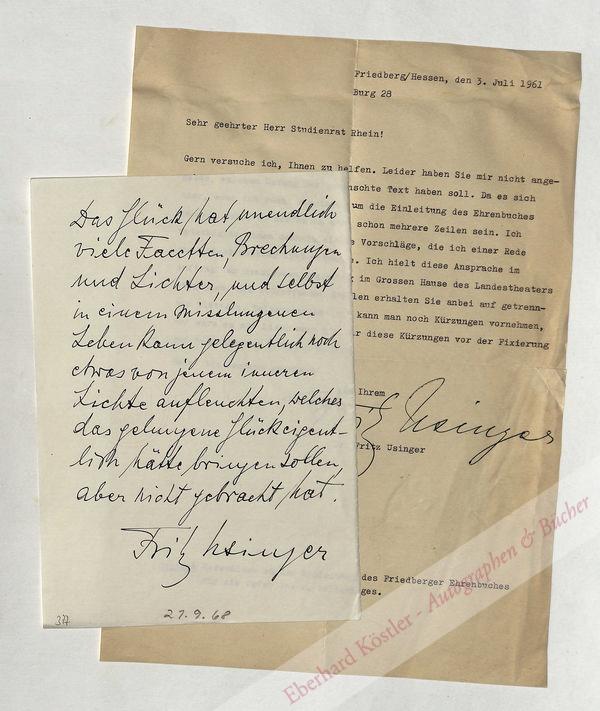 Friedberg/Hessen, den 3. Juli 1961
Burg 28
Sehr geehrter Herr Studienrat Rhein!
Gern versuche ich, Ihnen zu helfen. Leider haben Sie mir nicht ange-
nschte Text haben soll. Da es sich
um die Einleitung des Ehrenbuches
schon mehrere Zeilen sein. Ich
e Vorschläge, die ich einer Rede
e. Ich hielt diese Ansprache im
g im Grossen Hause des Landestheaters
len erhalten Sie anbei auf getrenn-
kann man noch Kürzungen vornehmen,
r diese Kürzungen vor der Fixierung
Ihrem
Fritz Usinger
Fritz Usinger
des Friedberger Ehrenbuches
ges.
Das Glück hat unendlich
viele Facetten, Brechungen
und Lichter, und selbst
in einem misslungenen
Leben kann gelegentlich noch
etwas von jenem inneren
Lichte aufleuchten, welches
das gelungene Glück eigent-
lich hätte bringen sollen,
aber nicht gebracht hat.
Fritz Usinger
377
27.9.68
Eberhard Köstler - Autographen & Bücher